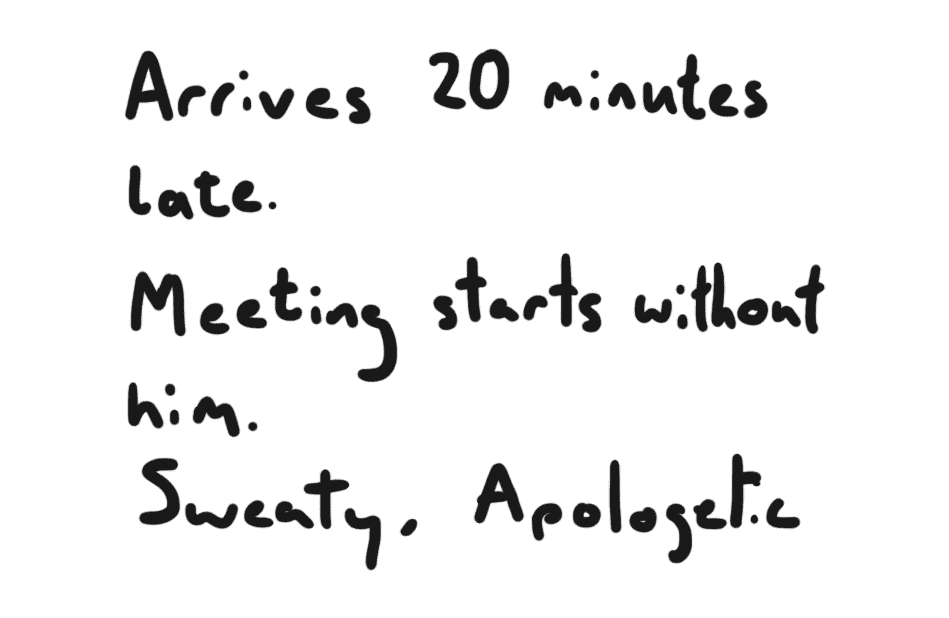 Arrives 20 minutes
late.
Meeting starts without
him.
Sweaty, Apologetic